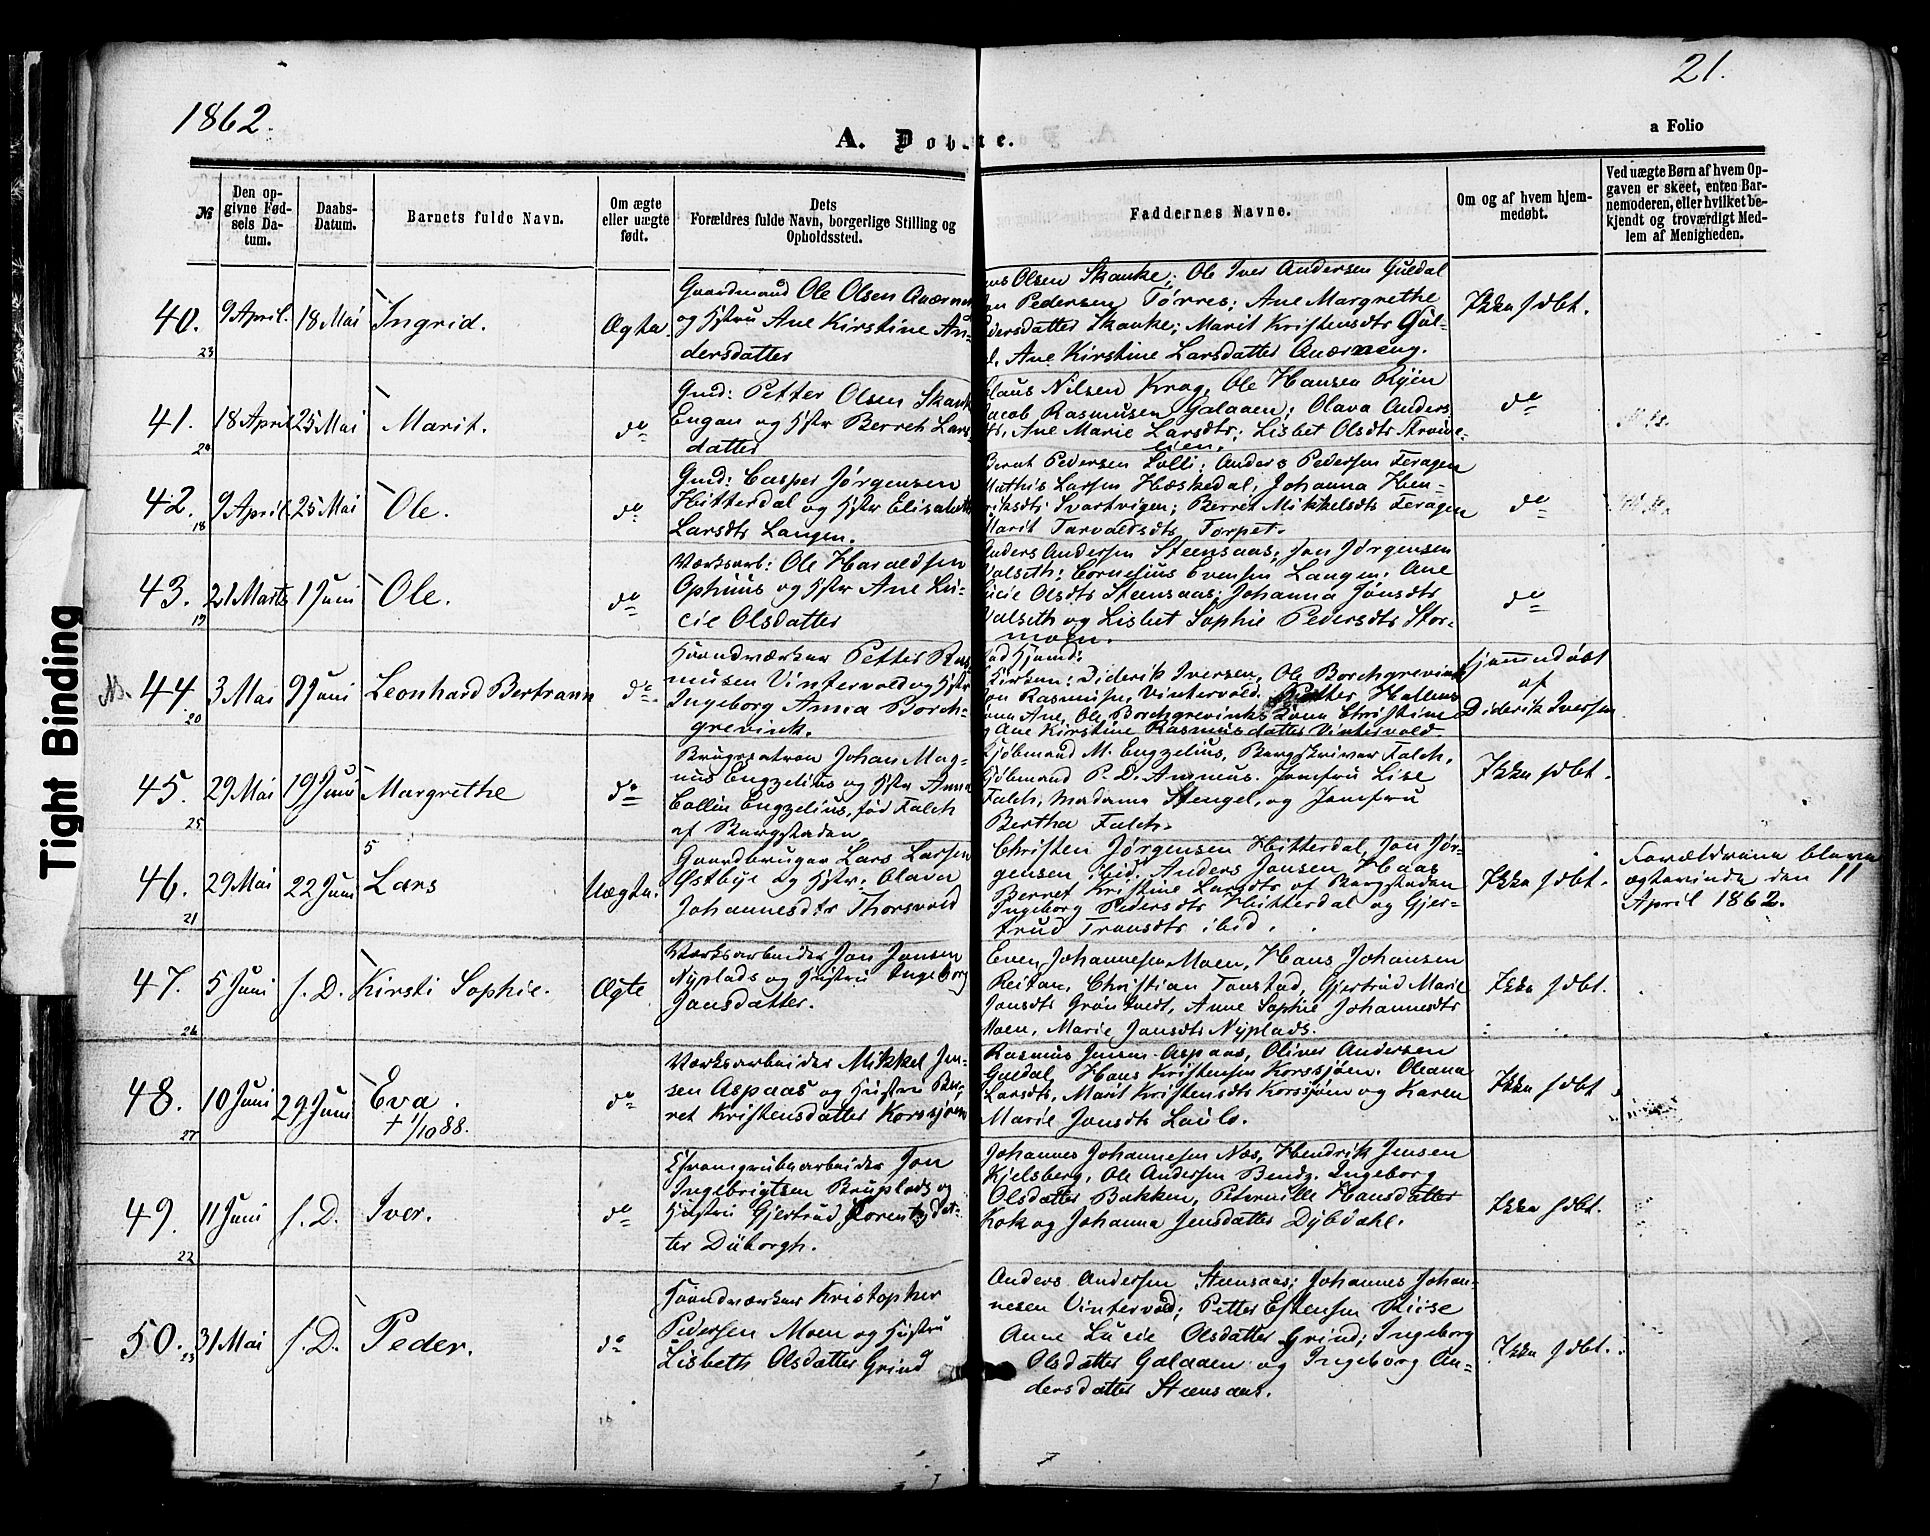 21.
1862.
A. Døbte.
a Folio
№
Den op-
givne Fød-
sels Da-
tum.
Daabs-
Datum.
Barnets fulde Navn.
Om ægte
eller uægte
født.
Dets
Forældres fulde Navn, borgerlige Stilling og
Opholdssted.
Faddernes Navne.
Om og af hvem hjem-
medøbt.
Ved uægte Børn af hvem Op-
gaven er skeet, enten Bar-
nemoderen, eller hvilket be-
kjendt og troværdigt Med-
lem af Menigheden.
40.
23
9 April.
18 Mai
Ingrid.
Ægte.
Gaardmand Ole Olsen
og Hstru Ane Kirstine An-
dersdatter
Olsen Skanke; Ole Iver Andersen Guldal
Pedersen Tørres; Ane Margrethe
Skanke; Marit Kristensdtr Gul-
Ane Kirstine Larsdatter
Ikke hdbt.
41.
24
18 April
25 Mai
Marit.
do
Gmd: Petter Olsen Skank
Engan og Hstr Berreth Lars-
datter
Claus Nilsen Krag, Ole Hansen Ryen
Jacob Rasmusen Galaaen; Olava Anders
Ane Marie Larsdtr; Lisbet Olsdtr
lien.
do
42.
18
9 April
25 Mai
Ole.
do
Gmd: Casper Jørgensen
Hitterdal og Hstr Elisabeth
Larsdtr Langen.
Bernt Pedersen Solli; Anders Pedersen Feragen
Mathis Larsen Hæskedal; Johanna Hen-
riksdtr Svartvigen; Berret Mikkelsdtr Feragen
Marit Tarvaldsdtr Torpet.
do
43.
19
21 Marts
1 Juni
Ole.
do
Værksarb: Ole Haraldsen
Ophuus og Hstr Ane Lu-
cie Olsdatter
Anders Andersen Steensaas; Jon Jørgensen
Galseth; Cornelius Evensen Langen; Ane
Lucie Olsdtr Steensaas; Johanna Jonsdtr
Galseth og Lisbet Sophie Pedersdtr Stor-
moen.
do
44.
20
3 Mai
9 Juni
Leonhard Bertrann
do
Haandværker Petter Ras
musen Vintervold og Hstr
Ingeborg Anna Borch-
grevink.
Kirken: Diderik Iversen, Ole Borchgrevink
Jon Rasmusen Vintervold. Petter
Kona Ane, Ole Borchgrevinks Kona Christine
og Ane Kirstine Rasmusdatter Vintervold
Hjemmedøbt
af
Diderik Iversen
45.
25
29 Mai
19 Juni
Margrethe
do
Brugspatron Johan Mag-
nus Engzelius og Hstr Anna
Collin Engzelius, fød Falch
af Bergstaden
Kjøbmand M. Engzelius, Bergskriver Falch,
Kjøbmand P. D. Jomfru Lise
Falch, Madame Stengel, og Jomfru
Bertha Falch.
Ikke hdbt.
46.
21
29 Mai
22 Juni
5
Lars
Uægte.
Gaardbruger Lars Larsen
Østbye og Hstr: Olava
Johannesdtr Thorsvold
Christen Jørgensen Hitterdal, Jon Jør-
gensen ibid. Anders Jonsen Haas
Berret Kristine Larsdtr af Bergstaden
Ingeborg Pedersdtr Hitterdal og Gjer-
trud Tronsdtr ibid.
Ikke hdbt.
Forældrene bleve
ægteviede den 11
April 1862.
47.
26
5 Juni
s. D.
Kirsti Sophie.
Ægte
Værksarbeider Jon Jonsen
Nyplads og Hustru Ingeborg
Jonsdatter.
Even Johannesen Moen, Hans Johansen
Reitan, Christian Tonstad, Gjertrud Marie
Jonsdtr Grøntvedt, Anne Sophie Johannesdtr
Moen, Marie Jonsdtr Nyplads.
Ikke hdbt.
48.
27
10 Juni
29 Juni
Eva.
† 1/10 88.
do
Værksarbeider Mikkel Jen-
sen Aspaas og Hustru Ber-
ret Kristensdatter Korssjøen
Rasmus Jensen Aspaas, Oliver Andersen
Guldal Hans Kristensen Korssjøen. Oleana
Larsdtr, Marit Kristensdtr Korssjøen og Karen
Marie Jonsdtr
Ikke hdbt
49.
22
11 Juni
s. D.
Iver.
do
Chromgrubearbeider Jon
Ingebrigtsen Bruplads og
Hustru Gjertrud Florents Dat-
ter Düborgh.
Johannes Johannesen Næs, Hendrik Jensen
Kjelsberg, Ole Andersen Ingeborg
Olsdatter Bakken, Peternille Hansdatter
Kok og Johanna Jensdatter Dybdahl.
Ikke hdbt.
50.
23
31 Mai
s. D.
Peder.
do
Haandværker Kristopher
Pedersen Moen og Hustru
Lisbeth Olsdatter Grind
Anders Andersen Steensaas; Johannes Johan-
nesen Vintervold; Petter Estensen Riise
Anne Lucie Olsdatter Grind; Ingeborg
Olsdatter Galaaen og Ingeborg An-
dersdatter Steensaas.
Ikke hdbt.
Tight Binding